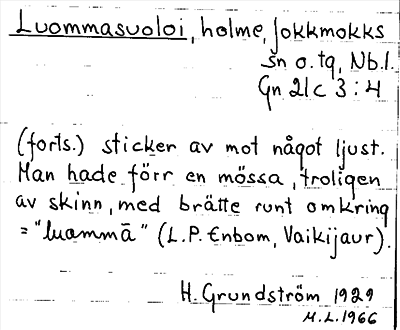 Luommasuoloi, holme, Jokkmokks
sn o. tg, Nb.l.
Gn 21c 3:4
(forts.) sticker av mot något ljust.
Man hade förr en mössa, troligen
av skinn, med brätte runt omkring
= "luommā" (L.P. Enbom, Vaikijaur).
H. Grundström 1929
M.L. 1966